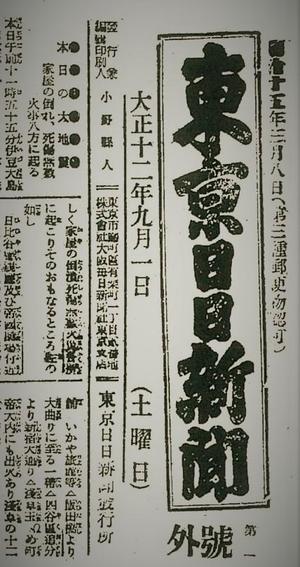 明治十五年三月八日(第三種郵便物認可)
東京日日新聞
號外
第一
大正十二年九月一日
(土曜日)
發行兼
編輯印刷人
小野縣人
東京市麴町區有樂町一丁目
株式會社大阪毎日新聞社東京支店
東京日日新聞發行所
本日の大地震
家屋の倒れ、死傷無數
火事八方に起る
本日午前十一時五十五分伊豆大島
しく家屋の倒潰死傷無數
に起こりそのおもなるところ左の
如し
日比谷
及び帝國劇場附近
館 いかや旅館
飯田町より
大曲りに至る一帶△四谷區追分
より新宿大通り△淺草
め町
帝大内にも出火あり淺草の十二